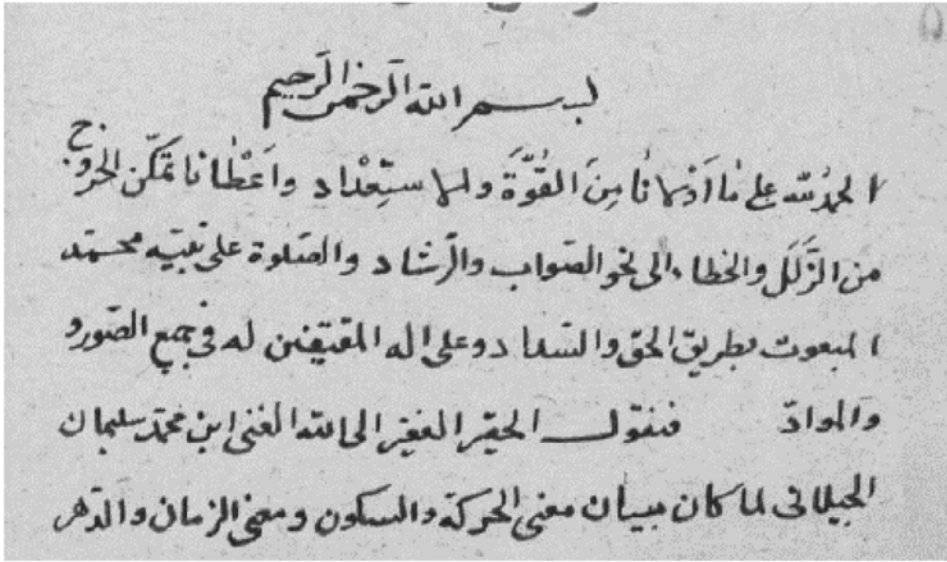 بسم الله الرحمن الرحيم
الحمد لله على ما من القُوَّة ولاستِعْداد واَعْطانا تمكّن الخروج
من الزَّلَل والخطاء الى نحو الصّواب والرّشاد والصّلوة على نبيّه محمّد
المبعوث بطريق الحق والسّداد وعلى اله المقتفين له فى جميع الصّور و
والموادّ فيقول الحقير الفقير الى الله الغنى ابن محمّد سليمان
الجيلانى لما كان بيان معنى الحركة والسكون ومعنى الزمان والدّهر